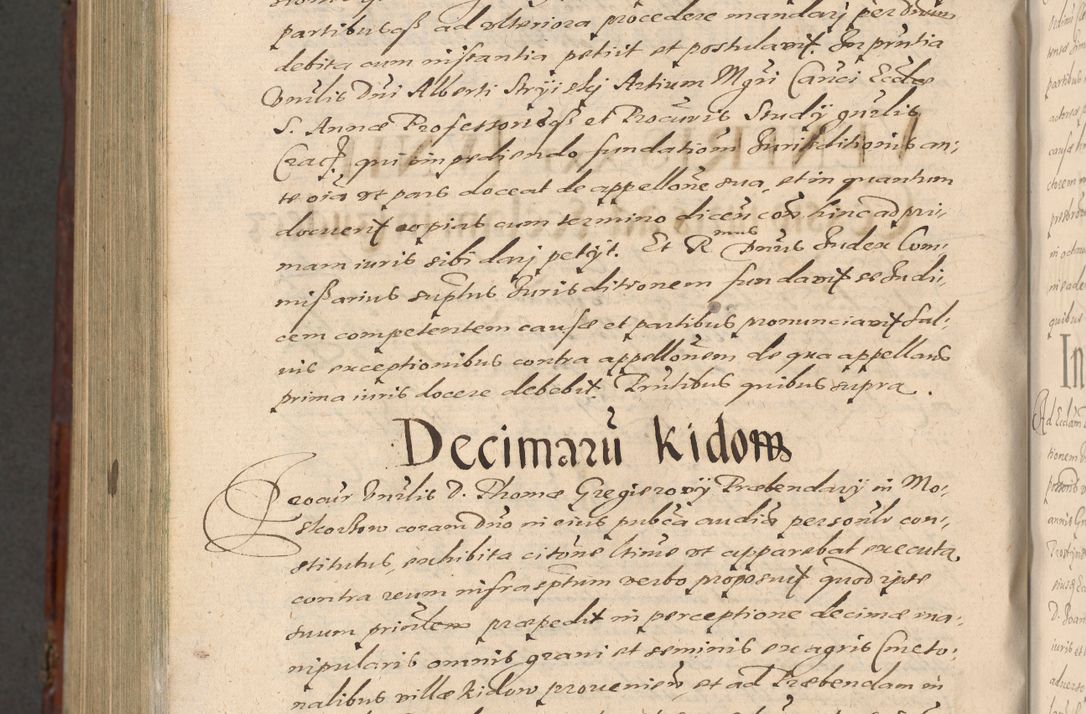 partibusqß ad ulteriora procedere mandarj per Dnum
debita cum instantia petiit et postulavit. In pntia
Vnrlis Dni Alberti Stryiskj Artium Mgri Canci Eccles
S. Annæ Professorisqß et Procuris Studij gnrlis
Crac. qui impediendo fundationi Jurisditionis an,
te oia ut pars doceat de appellone sua, et in quantum
docuerit copias cum termino dicen con hinc ad pri,
mam iuris sibi darj petijt. Et R mus Dnus Index Com,
mißarius suptus Jurisditionem fundavit se Iudi,
cem competentem causæ et partibus pronunciavit Sal,
vis exceptionibus contra appellonem de qua appellans
prima iuris docere debebit. Pntibus quibus supra.
Decimarū Kidow
Procur Vnrlis D. Thomæ Gregierowij Præbendarij in Mo,
skorkow coram Dno in eius pubca audia personlr con,
stitutus, exhibita citone ltrme ut apparebat executa
contra reum infrasptum verbo proposuit quod ipse
suum prinlem præpedit in perceptione decimæ ma,
nipularis omnis grani et seminis ex agris Cmeto,
nalibus villæ Kidow provenien, et ad Præbendam in